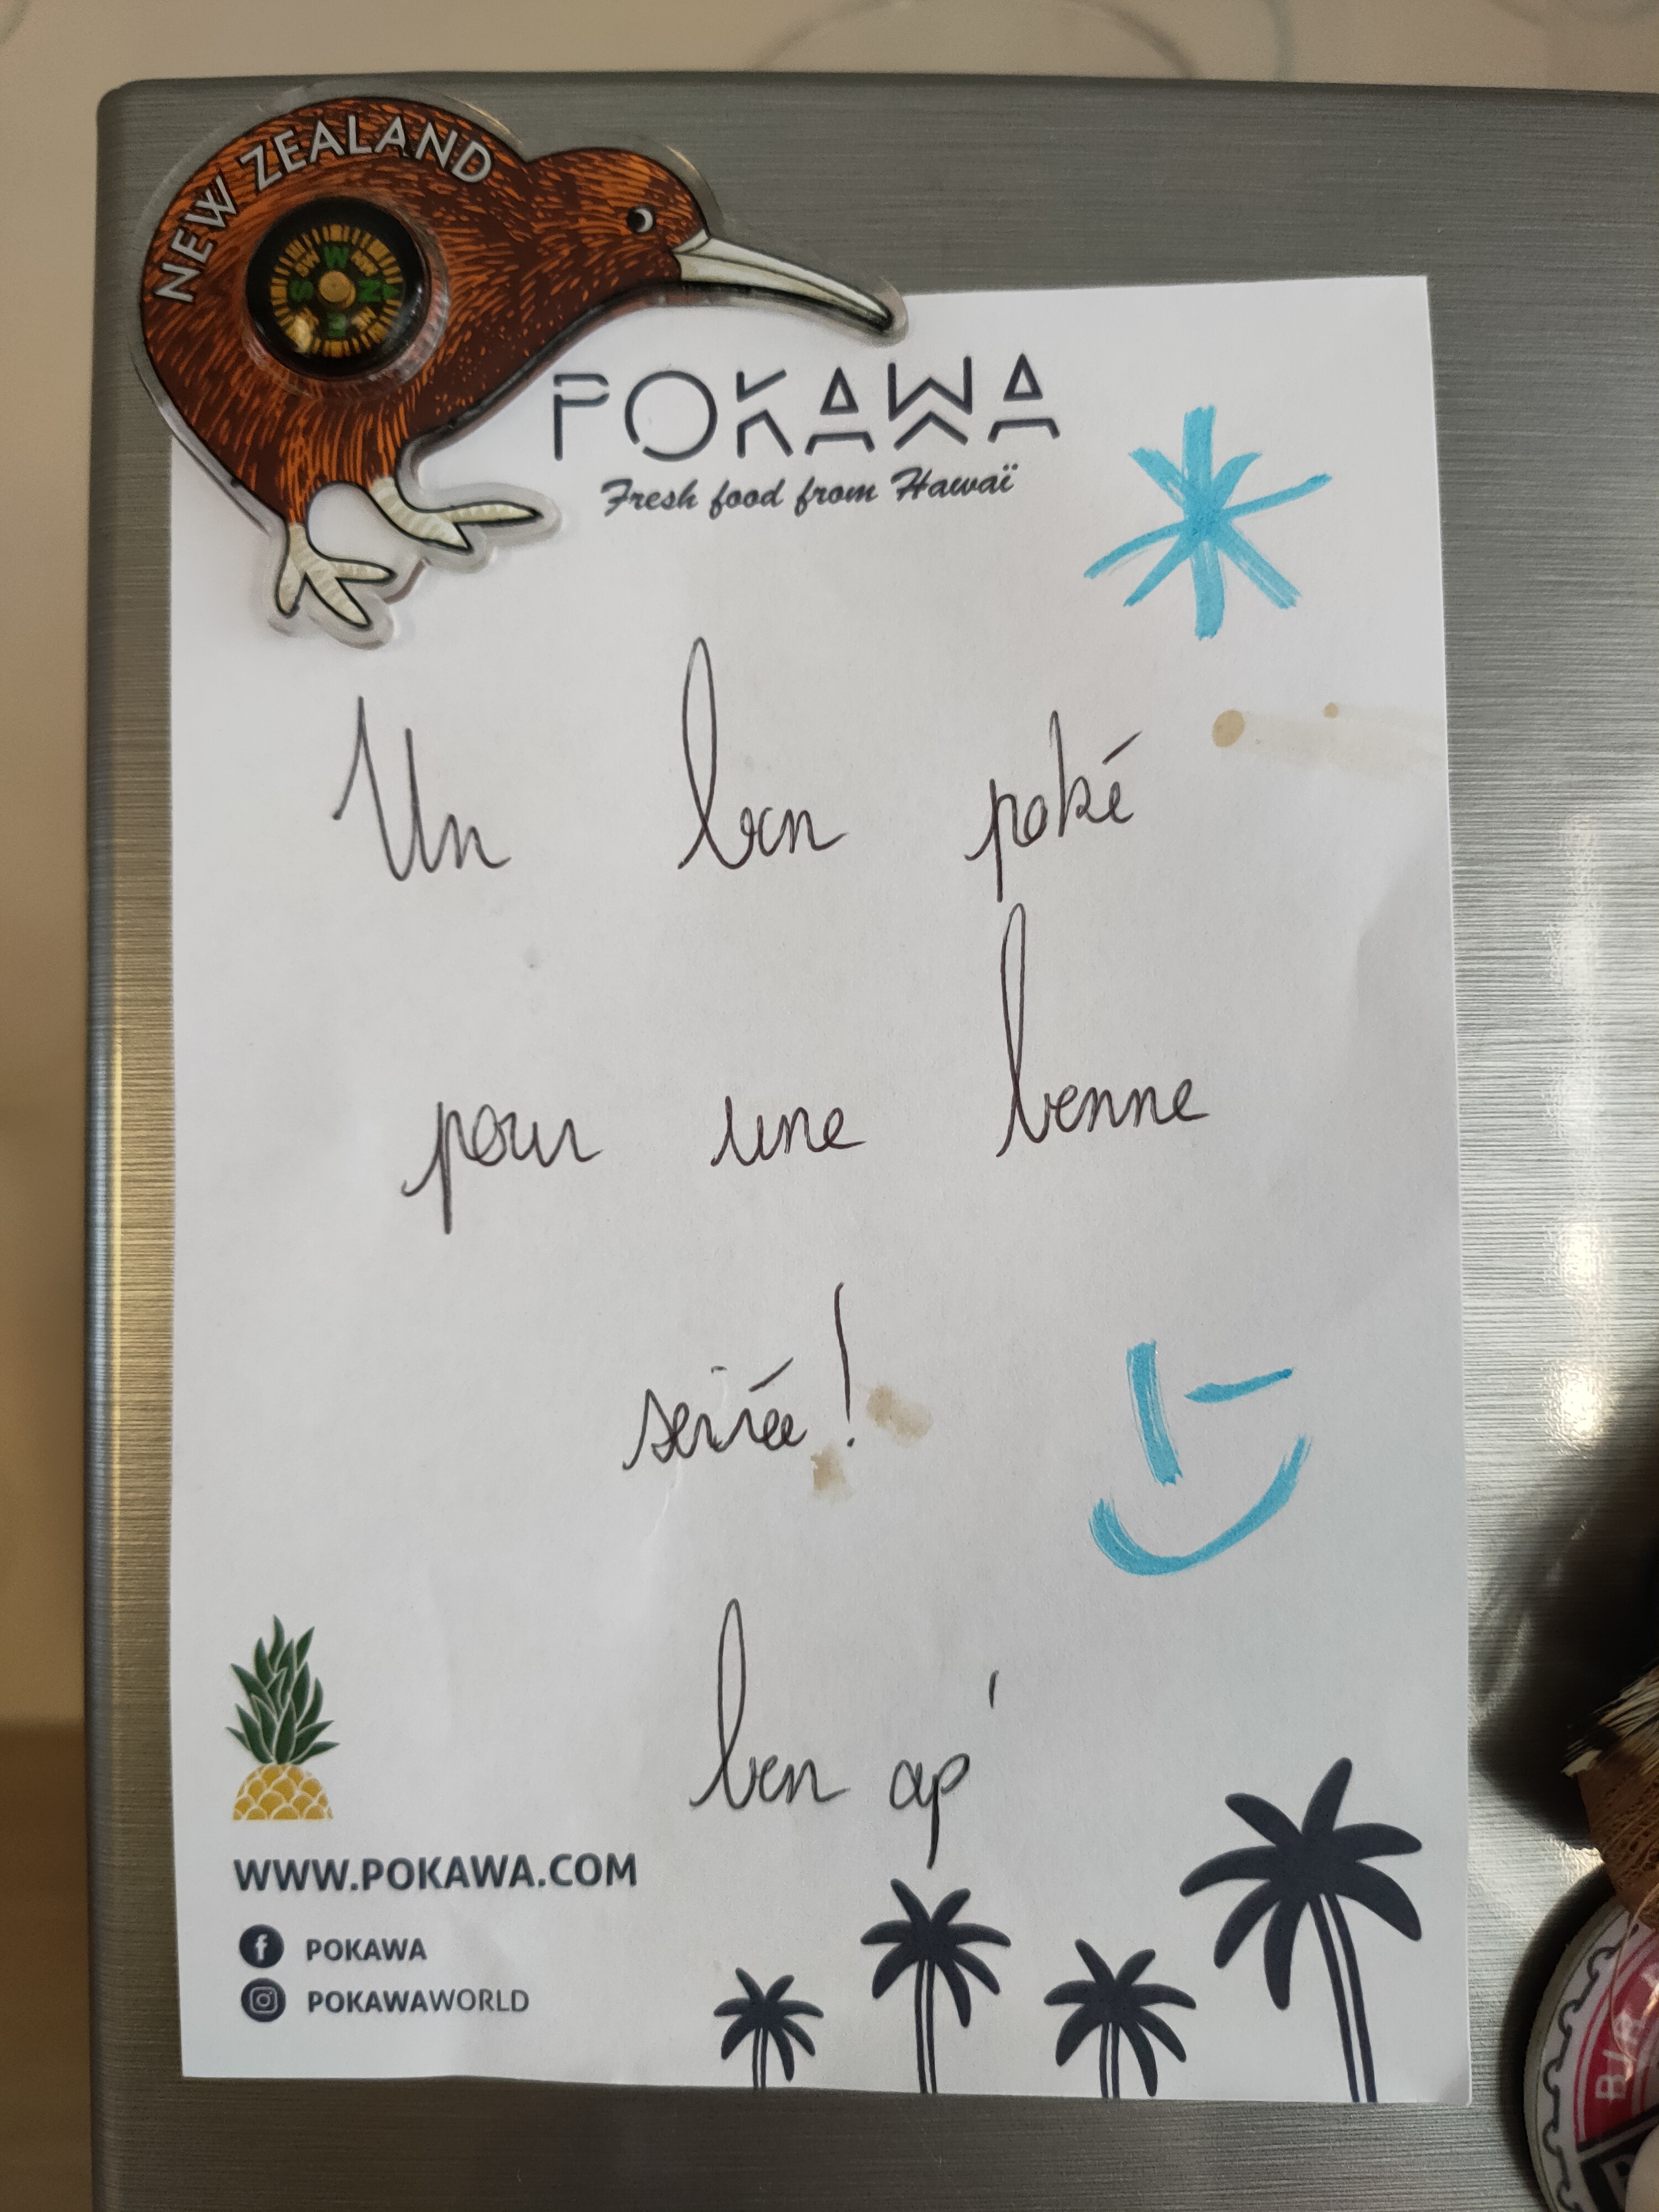 NEW ZEALAND
W
NW
N
NE
E
S
SW
POKAWA
Fresh food from Hawaï
Un bon poké
pour une bonne
soirée !
bon ap'
WWW.POKAWA.COM
POKAWA
POKAWAWORLD